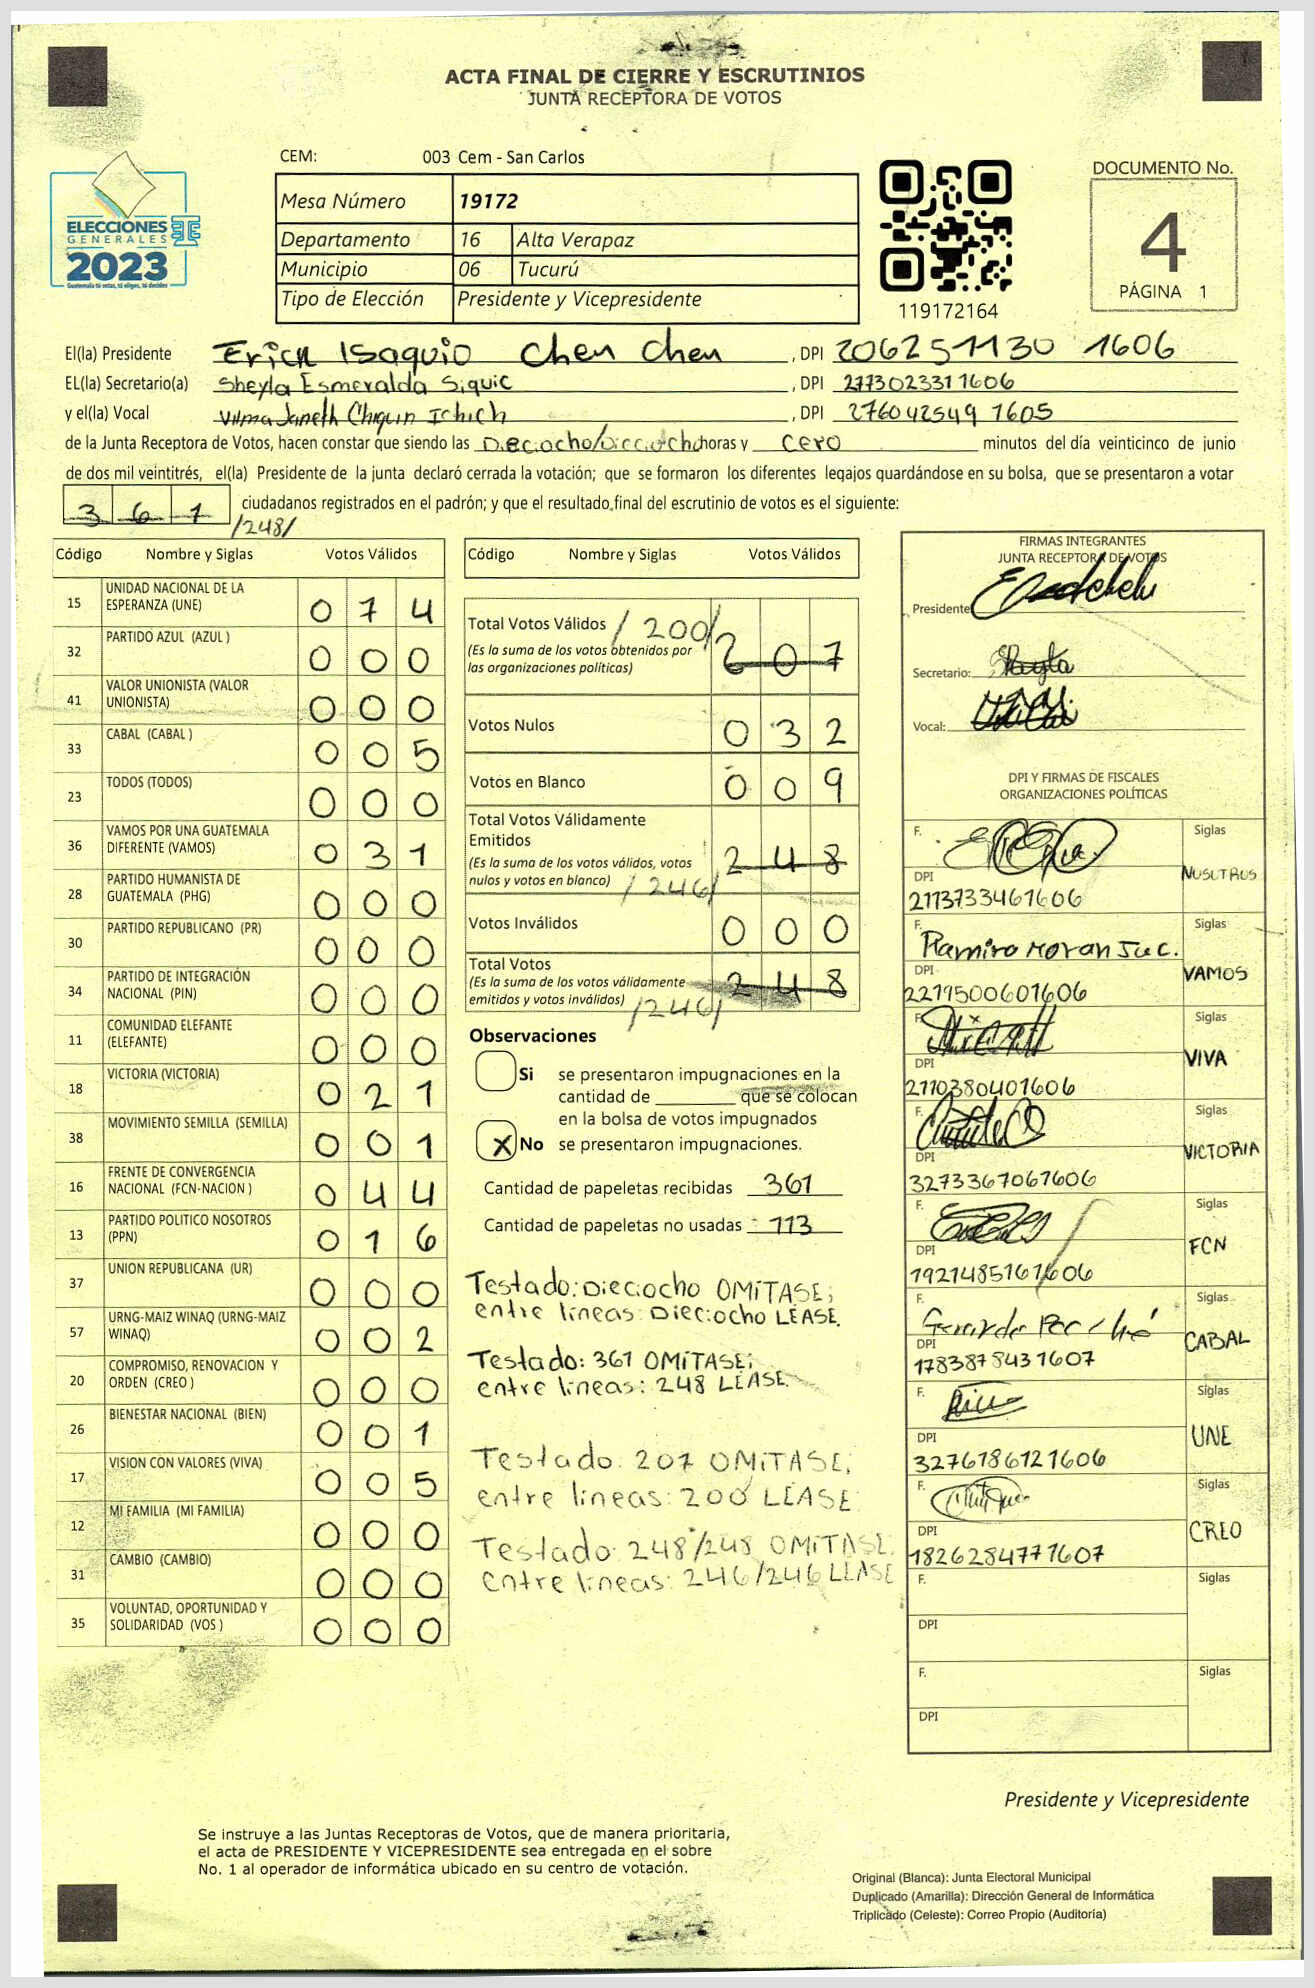 ACTA FINAL DE CIERRE Y ESCRUTINIOS
JUNTA RECEPTORA DE VOTOS
CEM: 003 Cem - San Carlos
DOCUMENTO No.
4
PÁGINA 1
ELECCIONES
GENERALES
2023
Guatemala tú votas, tú eliges, tú decides
Mesa Número 19172
Departamento 16 Alta Verapaz
Municipio 06 Tucurú
Tipo de Elección Presidente y Vicepresidente
119172164
El(la) Presidente Erick Isaquio Chen Chen , DPI 206251130 1606
EL(la) Secretario(a) Sheyla Esmeralda Siquic , DPI 277302331 1606
y el(la) Vocal Vilma Janeth Chiquin Ichich , DPI 276042549 1605
de la Junta Receptora de Votos, hacen constar que siendo las Dieciocho/Dieciocho horas y cero minutos del día veinticinco de junio
de dos mil veintitrés, el(la) Presidente de la junta declaró cerrada la votación; que se formaron los diferentes legajos quardándose en su bolsa, que se presentaron a votar
361 ciudadanos registrados en el padrón; y que el resultado final del escrutinio de votos es el siguiente:
/248/
Código Nombre y Siglas Votos Válidos
15 UNIDAD NACIONAL DE LA ESPERANZA (UNE) 0 7 4
32 PARTIDO AZUL (AZUL ) 0 0 0
41 VALOR UNIONISTA (VALOR UNIONISTA) 0 0 0
33 CABAL (CABAL ) 0 0 5
23 TODOS (TODOS) 0 0 0
36 VAMOS POR UNA GUATEMALA DIFERENTE (VAMOS) 0 3 1
28 PARTIDO HUMANISTA DE GUATEMALA (PHG) 0 0 0
30 PARTIDO REPUBLICANO (PR) 0 0 0
34 PARTIDO DE INTEGRACIÓN NACIONAL (PIN) 0 0 0
11 COMUNIDAD ELEFANTE (ELEFANTE) 0 0 0
18 VICTORIA (VICTORIA) 0 2 1
38 MOVIMIENTO SEMILLA (SEMILLA) 0 0 1
16 FRENTE DE CONVERGENCIA NACIONAL (FCN-NACION ) 0 4 4
13 PARTIDO POLITICO NOSOTROS (PPN) 0 1 6
37 UNION REPUBLICANA (UR) 0 0 0
57 URNG-MAIZ WINAQ (URNG-MAIZ WINAQ) 0 0 2
20 COMPROMISO, RENOVACION Y ORDEN (CREO ) 0 0 0
26 BIENESTAR NACIONAL (BIEN) 0 0 1
17 VISION CON VALORES (VIVA) 0 0 5
12 MI FAMILIA (MI FAMILIA) 0 0 0
31 CAMBIO (CAMBIO) 0 0 0
35 VOLUNTAD, OPORTUNIDAD Y SOLIDARIDAD (VOS ) 0 0 0
Código Nombre y Siglas Votos Válidos
Total Votos Válidos /200/ 2 0 7
(Es la suma de los votos obtenidos por
las organizaciones políticas)
Votos Nulos 0 3 2
Votos en Blanco 0 0 9
Total Votos Válidamente
Emitidos 2 4 8
(Es la suma de los votos válidos, votos
nulos y votos en blanco) /246/
Votos Inválidos 0 0 0
Total Votos
(Es la suma de los votos válidamente 2 4 8
emitidos y votos inválidos) /246/
Observaciones
Si se presentaron impugnaciones en la
cantidad de ________ que se colocan
en la bolsa de votos impugnados
X No se presentaron impugnaciones.
Cantidad de papeletas recibidas 361
Cantidad de papeletas no usadas 113
Testado: Dieciocho OMITASE;
entre lineas: Dieciocho LEASE.
Testado: 361 OMITASE;
entre lineas: 248 LEASE.
Testado: 207 OMITASE;
entre lineas: 200 LEASE
Testado: 248/248 OMITASE.
entre lineas: 246/246 LEASE
FIRMAS INTEGRANTES
JUNTA RECEPTORA DE VOTOS
Presidente:
Secretario: Sheyla
Vocal:
DPI Y FIRMAS DE FISCALES
ORGANIZACIONES POLÍTICAS
F. Siglas
DPI NOSOTROS
2113733461606
F. Ramiro Moran Juc. Siglas
DPI VAMOS
2219500601606
F. Siglas
DPI VIVA
2110380401606
F. Siglas
DPI VICTORIA
3273367061606
F. Siglas
DPI FCN
1921485161606
F. Siglas
DPI CABAL
1783878431607
F. Siglas
DPI UNE
3276186121606
F. Siglas
DPI CREO
1826284771607
F. Siglas
DPI
F. Siglas
DPI
Presidente y Vicepresidente
Se instruye a las Juntas Receptoras de Votos, que de manera prioritaria,
el acta de PRESIDENTE Y VICEPRESIDENTE sea entregada en el sobre
No. 1 al operador de informática ubicado en su centro de votación.
Original (Blanca): Junta Electoral Municipal
Duplicado (Amarilla): Dirección General de Informática
Triplicado (Celeste): Correo Propio (Auditoría)